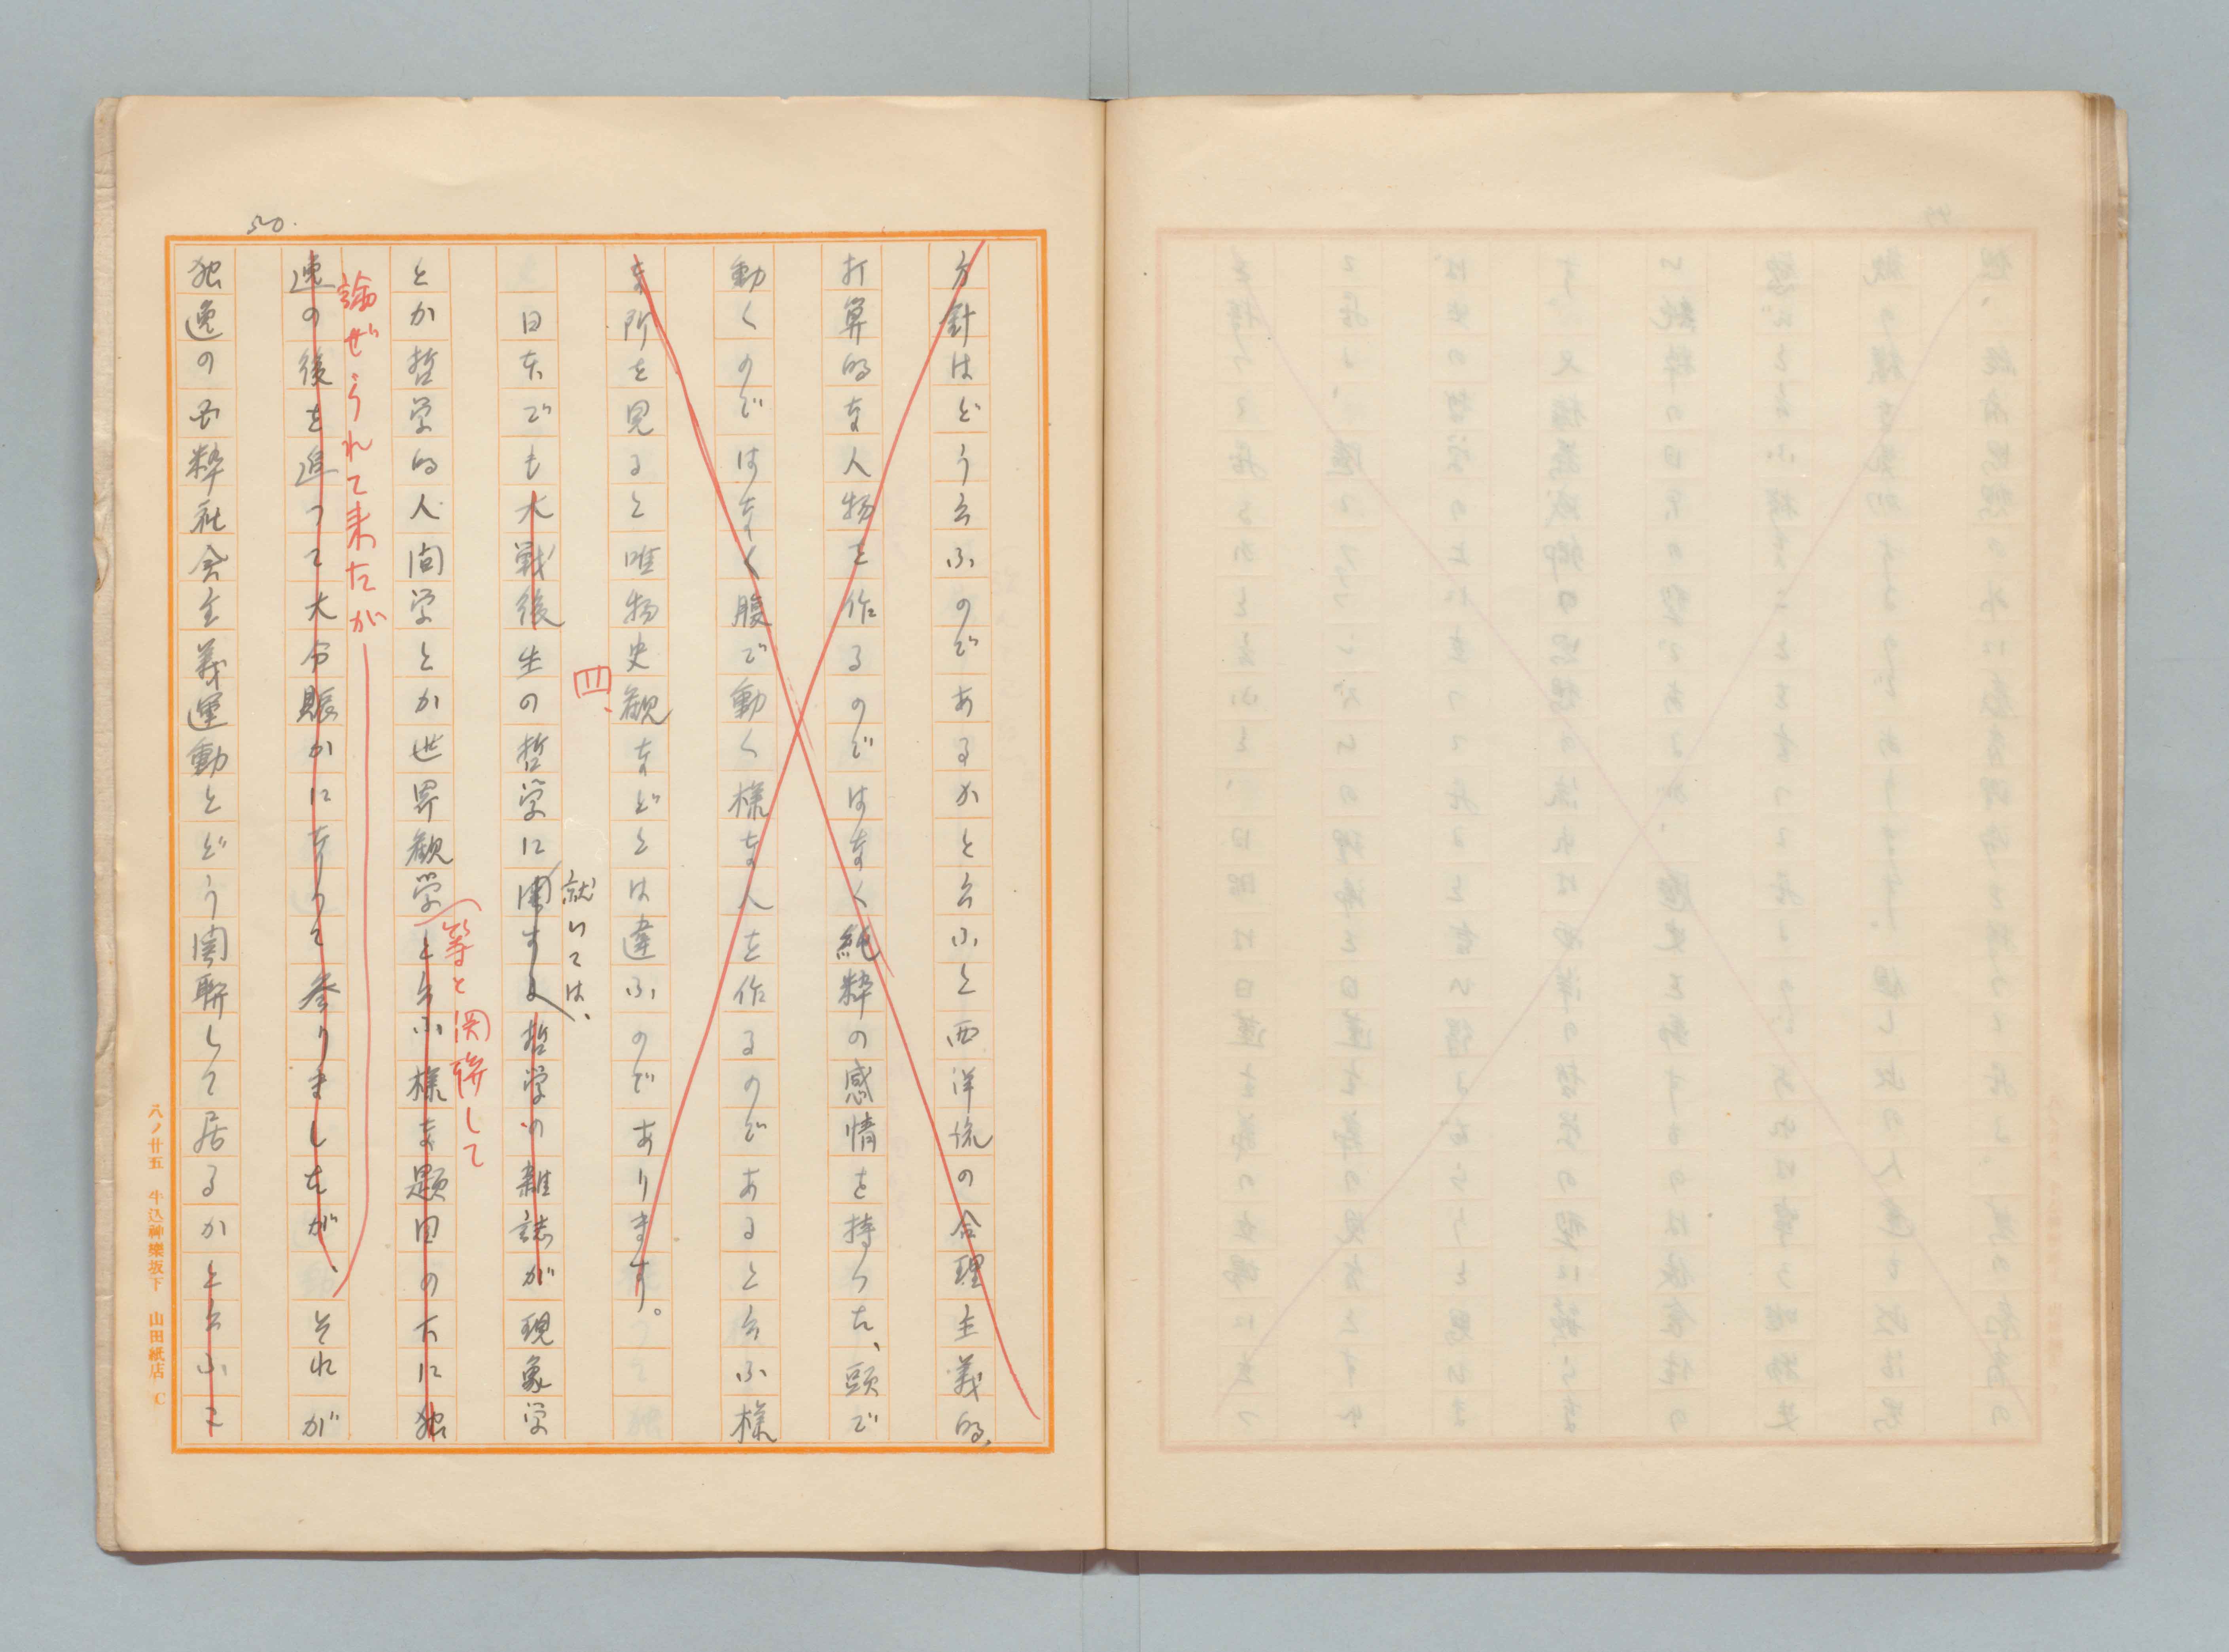 50.
方針はどう云ふのであるかと云ふと西洋流の合理主義的、
打算的な人物を作るのではなく純粋の感情を持つた、頭で
動くのではなく腹で動く様な人を作るのであると云ふ様
な所を見ると唯物史観などとは違ふのであります。
四、
日本でも大戦後生の哲学に関する哲学の雑誌が現象学
就いては、
とか哲学的人間学とか世界観学と云ふ様な題目の下に独
等と関聯して
論ぜられて来たが
逸の後を追つて大分賑かになつて参りましたが、それが
独逸の国粋社会主義運動とどう関聯して居るかと云ふこ
八ノ廿五 牛込神樂坂下 山田紙店 C